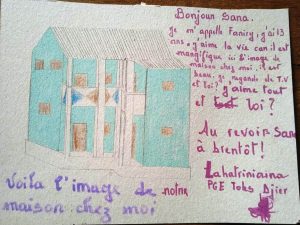 Bonjour Sana.
je m'appelle Faniry, j'ai 13
ans, j'aime la vie car il est
magnifique ici l'image de
maison chez moi, il est
beau, je regarde de T.V
et toi? j'aime tout
et toi?
Au revoir Sana
à bientôt!
Lahatriniaina
PGE
voila l'image de notre
maison chez moi